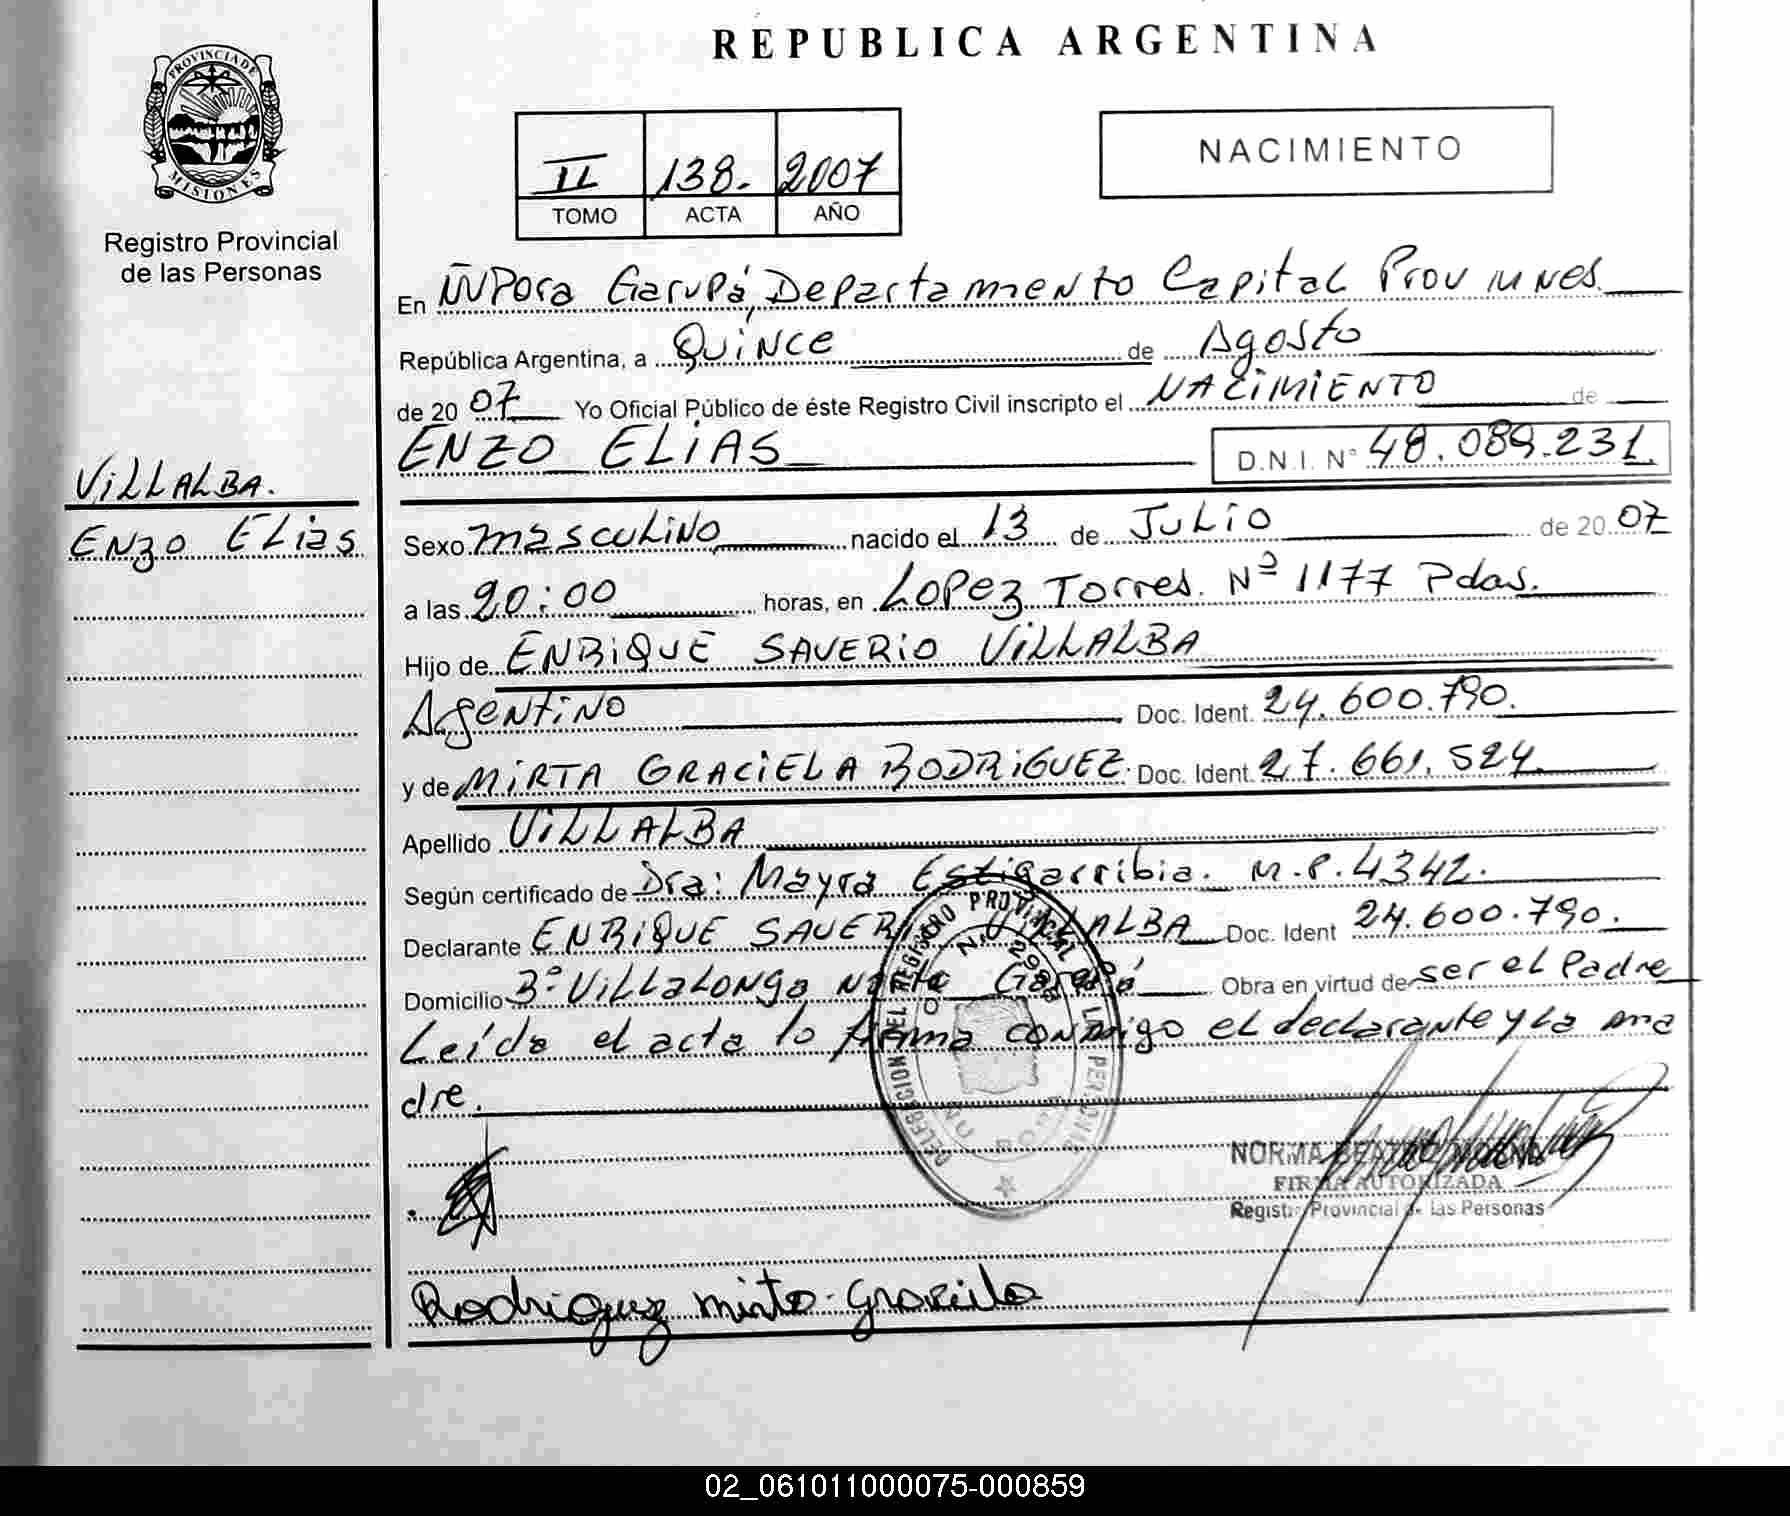 REPUBLICA ARGENTINA
PROVINCIA DE
MISIONES
Registro Provincial
de las Personas
II 138. 2007
TOMO ACTA AÑO
NACIMIENTO
En Ñu Pora Garupá, Departamento Capital Prov
República Argentina, a Quince de Agosto
de 20 07 Yo Oficial Público de éste Registro Civil inscripto el NACIMIENTO de
ENZO ELIAS D.N.I. Nº 48.089.231.
VILLALBA.
Enzo Elias
Sexo masculino nacido el 13 de Julio de 20 07
a las 20:00 horas, en Lopez Torres. Nº 1177 Pdas.
Hijo de ENRIQUE SAVERIO VILLALBA
Argentino Doc. Ident. 24.600.790.
y de MIRTA GRACIELA RODRIGUEZ. Doc. Ident. 27.661.524.
Apellido VILLALBA
Según certificado de Dra: Mayra Estigarribia. M.P. 4342.
Declarante ENRIQUE SAVERIO VILLALBA Doc. Ident 24.600.790.
Domicilio Bº Villalonga Norte Garupá Obra en virtud de ser el Padre
Leída el acta lo firma conmigo el declarante y la ma
dre.
DELEGACION DEL REGISTRO PROVINCIAL PERSONAS
NORMA BEATRIZ
FIRMA AUTORIZADA
Registro Provincial de las Personas
Rodriguez mirta graciela
02_061011000075-000859